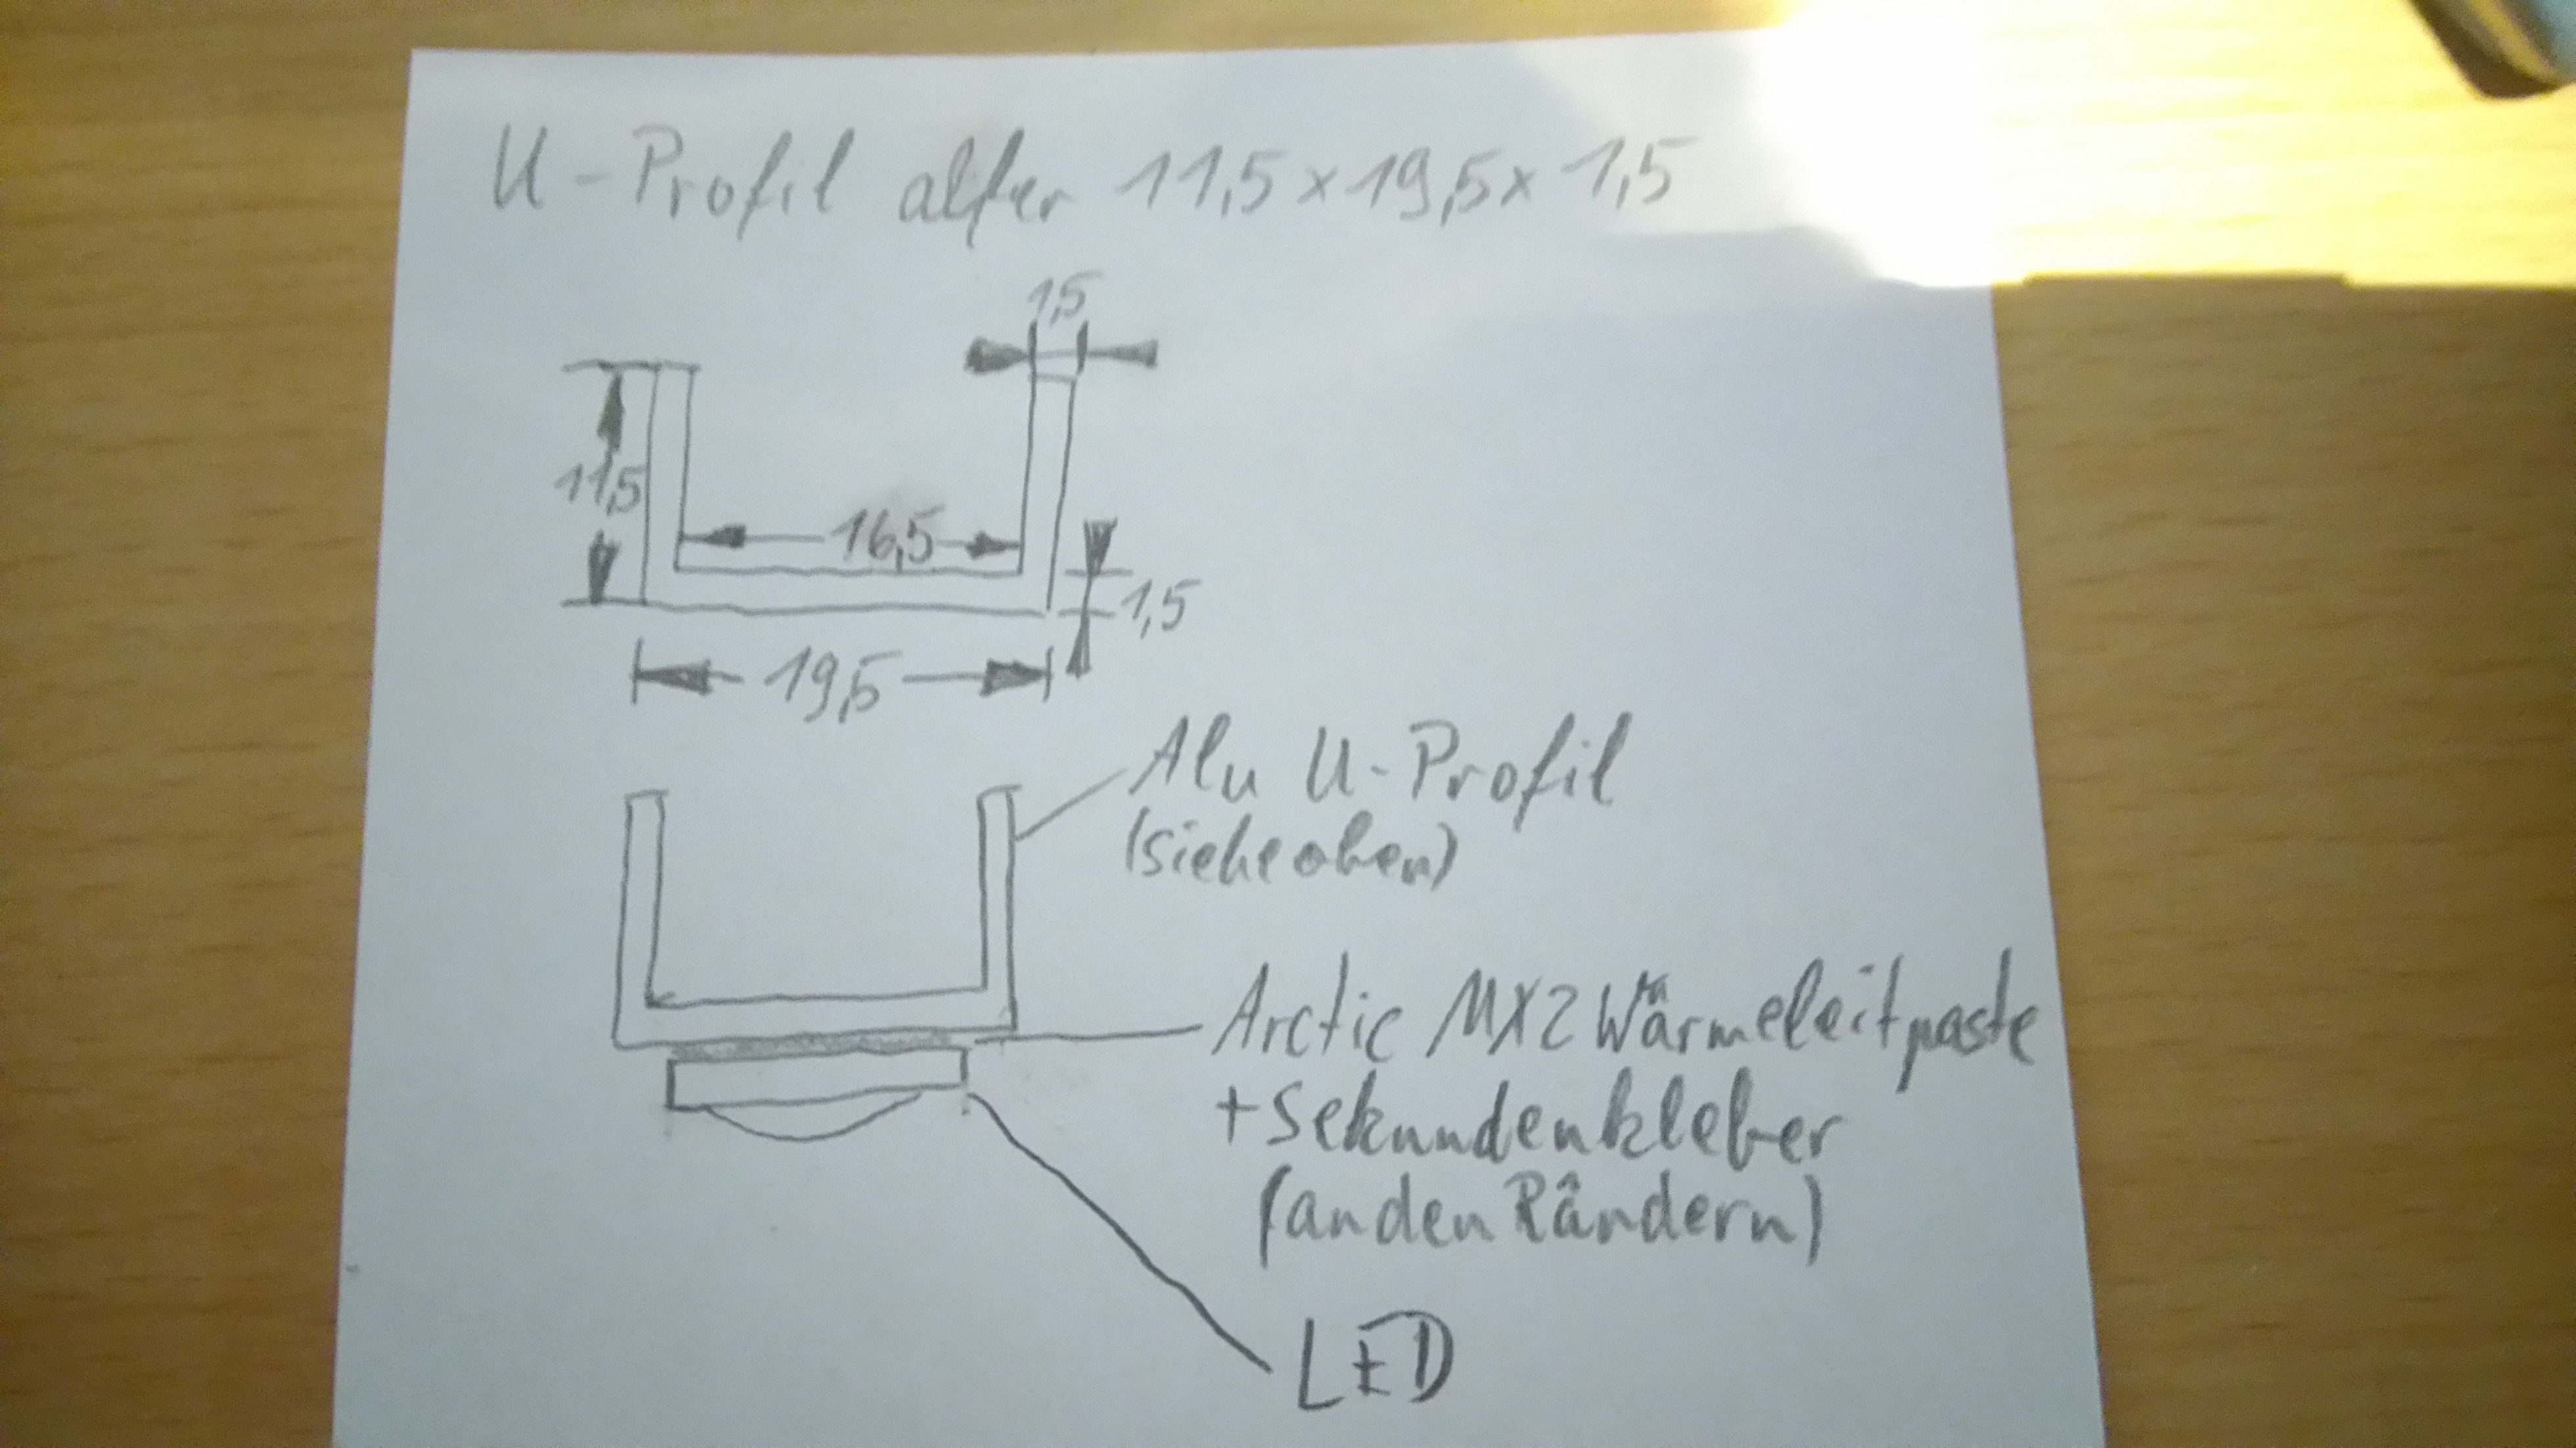 U-Profil alfer 11,5x19,5x1,5
1,5
11,5
16,5
1,5
19,5
Alu U-Profil
(siehe oben)
Arctic MX2 Wärmeleitpaste
+Sekundenkleber
(an den Rändern)
LED